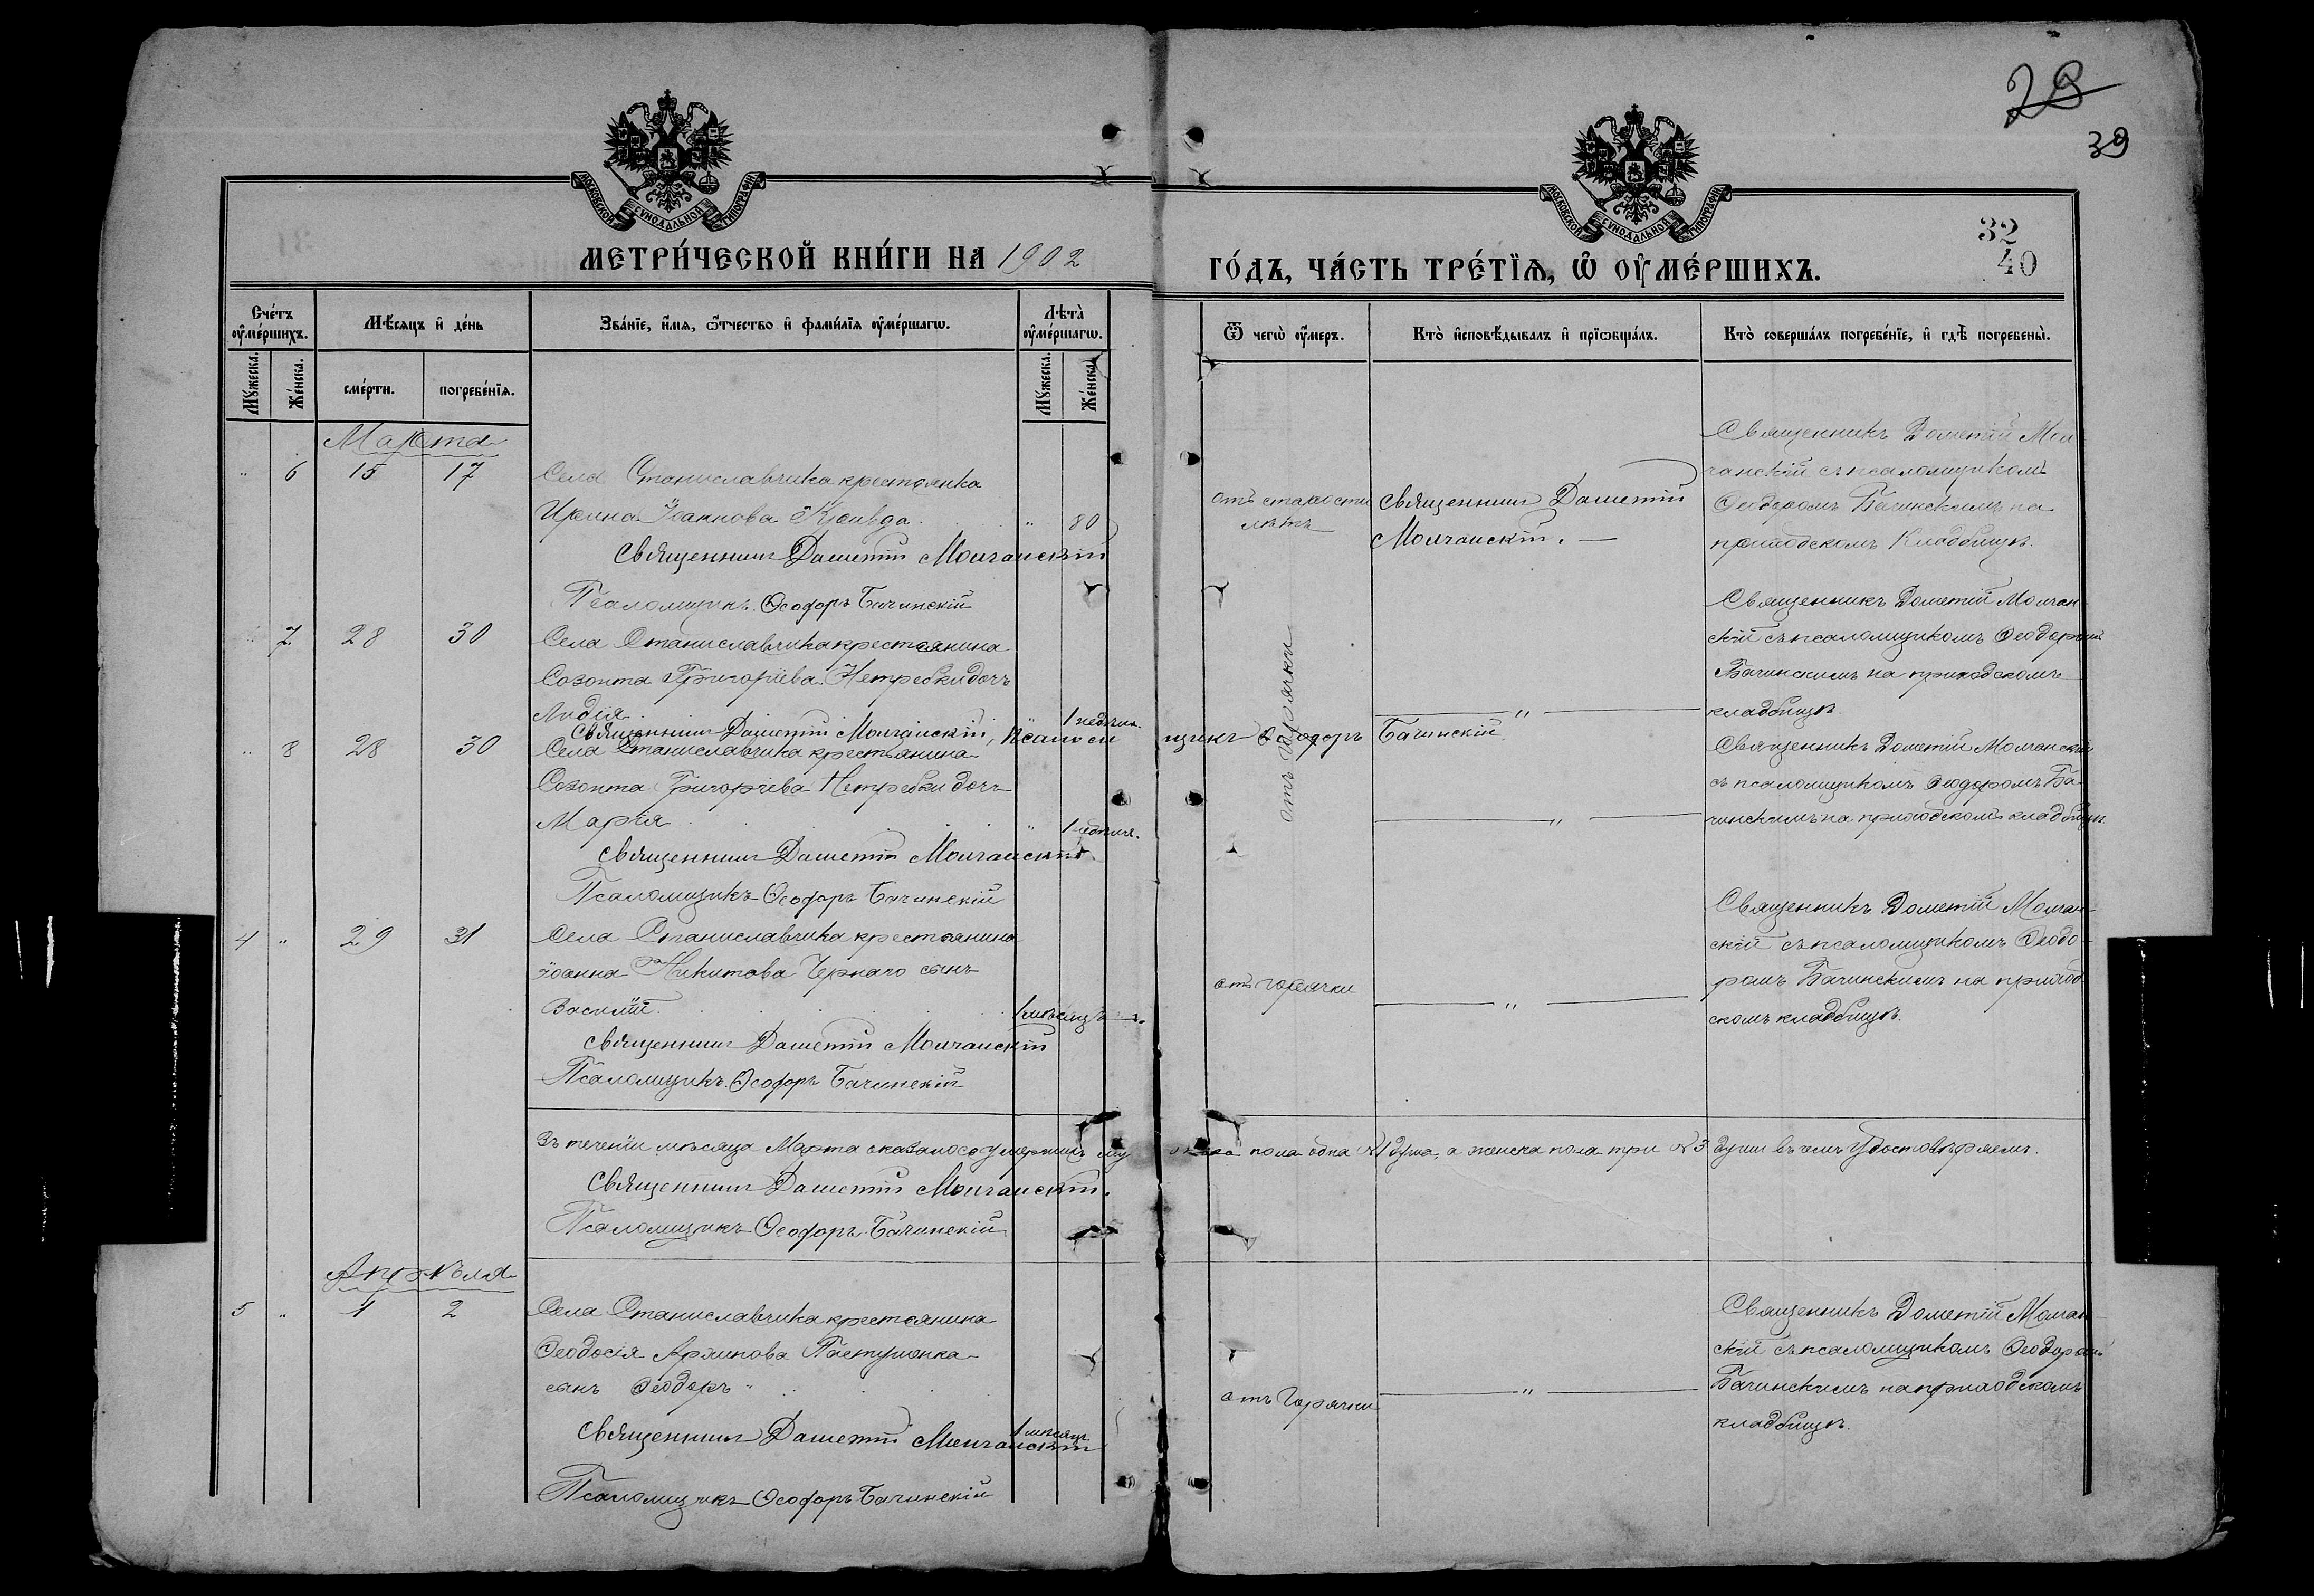 28
39
МОСКОВСКОЙ СУНОДАЛЬНОЙ ТИПОГРАФІИ
МОСКОВСКОЙ СУНОДАЛЬНОЙ ТИПОГРАФІИ
32
40
МЕТРИ́ЧЕСКОЙ КНИ́ГИ НА 1902
ГО́ДЪ, ЧА́СТЬ ТРЕ́ТІѦ, Ѡ ОУМЕ́РШИХЪ.
Сче́тъ оумє́ршихъ.
Мѣ́сяцъ и де́нь
Зва́нїе, и́мя, ѻ҆́тчество и фами́лїя оуме́ршагѡ.
Лѣта̀ оуме́ршагѡ.
Ѿ чегѡ̀ оу́меръ.
Кто̀ и҆сповѣ́дывалъ и҆ прїѡбща́лъ.
Кто̀ соверша́лъ погребе́нїе, и҆ гдѣ̀ погребены̀.
Мꙋ́жеска.
Же́нска.
сме́рти.
погребе́нїя.
Мꙋ́жеска.
Же́нска.
Марта
" 6 15 17 Села Станиславчика крестьянка
Ирина Іоаннова " 80
Священникъ Дометій Молчанскій
Псаломщикъ Ѳеодоръ Бачинскій
отъ старости
лѣтъ
Священникъ Дометій
Молчанскій. —
Священникъ Дометій Мол-
чанскій съ псаломщикомъ
Ѳеодоромъ Бачинскимъ на
приходскомъ кладбищѣ.
" 7 28 30 Села Станиславчика крестьянина
Созонта Григоріева Нетребки дочь
Лидія " 1 недѣля.
Священникъ Дометій Молчанскій, Псаломщикъ Ѳеодоръ Бачинскій
отъ горячки
— " —
Священникъ Дометій Молчан-
скій съ псаломщикомъ Ѳеодоромъ
Бачинскимъ на приходскомъ
кладбищѣ.
" 8 28 30 Села Станиславчика крестьянина
Созонта Григоріева Нетребки дочь
Марія " 1 недѣля.
Священникъ Дометій Молчанскій.
Псаломщикъ Ѳеодоръ Бачинскій
— " —
Священникъ Дометій Молчанскій
съ псаломщикомъ Ѳеодоромъ Ба-
чинскимъ на приходскомъ кладбищѣ.
4 " 29 31 Села Станиславчика крестьянина
Іоанна Никитова Чернаго сынъ
Василій 1 мѣсяцъ
Священникъ Дометій Молчанскій
Псаломщикъ Ѳеодоръ Бачинскій
отъ горячки
— " —
Священникъ Дометій Молчан-
скій съ псаломщикомъ Ѳеодо-
ромъ Бачинскимъ на приход-
скомъ кладбищѣ.
Въ теченіи мѣсяца Марта оказалось умершихъ мужеска пола одна №1 душа, а женска пола три №3 души въ чемъ удостовѣряемъ.
Священникъ Дометій Молчанскій.
Псаломщикъ Ѳеодоръ Бачинскій
Апрѣля
5 " 1 2 Села Станиславчика крестьянина
Ѳеодосія Пастушенка
сынъ Ѳеодоръ
1 мѣсяцъ
Священникъ Дометій Молчанскій
Псаломщикъ Ѳеодоръ Бачинскій
отъ горячки
— " —
Священникъ Дометій Молчан-
скій съ псаломщикомъ Ѳеодоромъ
Бачинскимъ на приходскомъ
кладбищѣ.